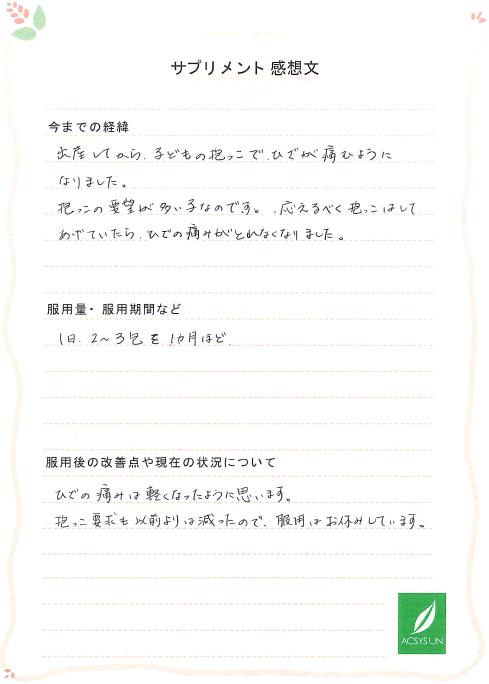 サプリメント 感想文
今までの経緯
出産してから、子どもの抱っこで、ひざが痛むように
なりました。
抱っこの要望が多い子なのです。、応えるべく抱っこはして
あげていたら、ひざの痛みがとれなくなりました。
服用量・服用期間など
1日、2〜3包を1カ月ほど
服用後の改善点や現在の状況について
ひざの痛みは軽くなったように思います。
抱っこ要求も以前よりは減ったので、服用はお休みしています。
ACSYSLIN